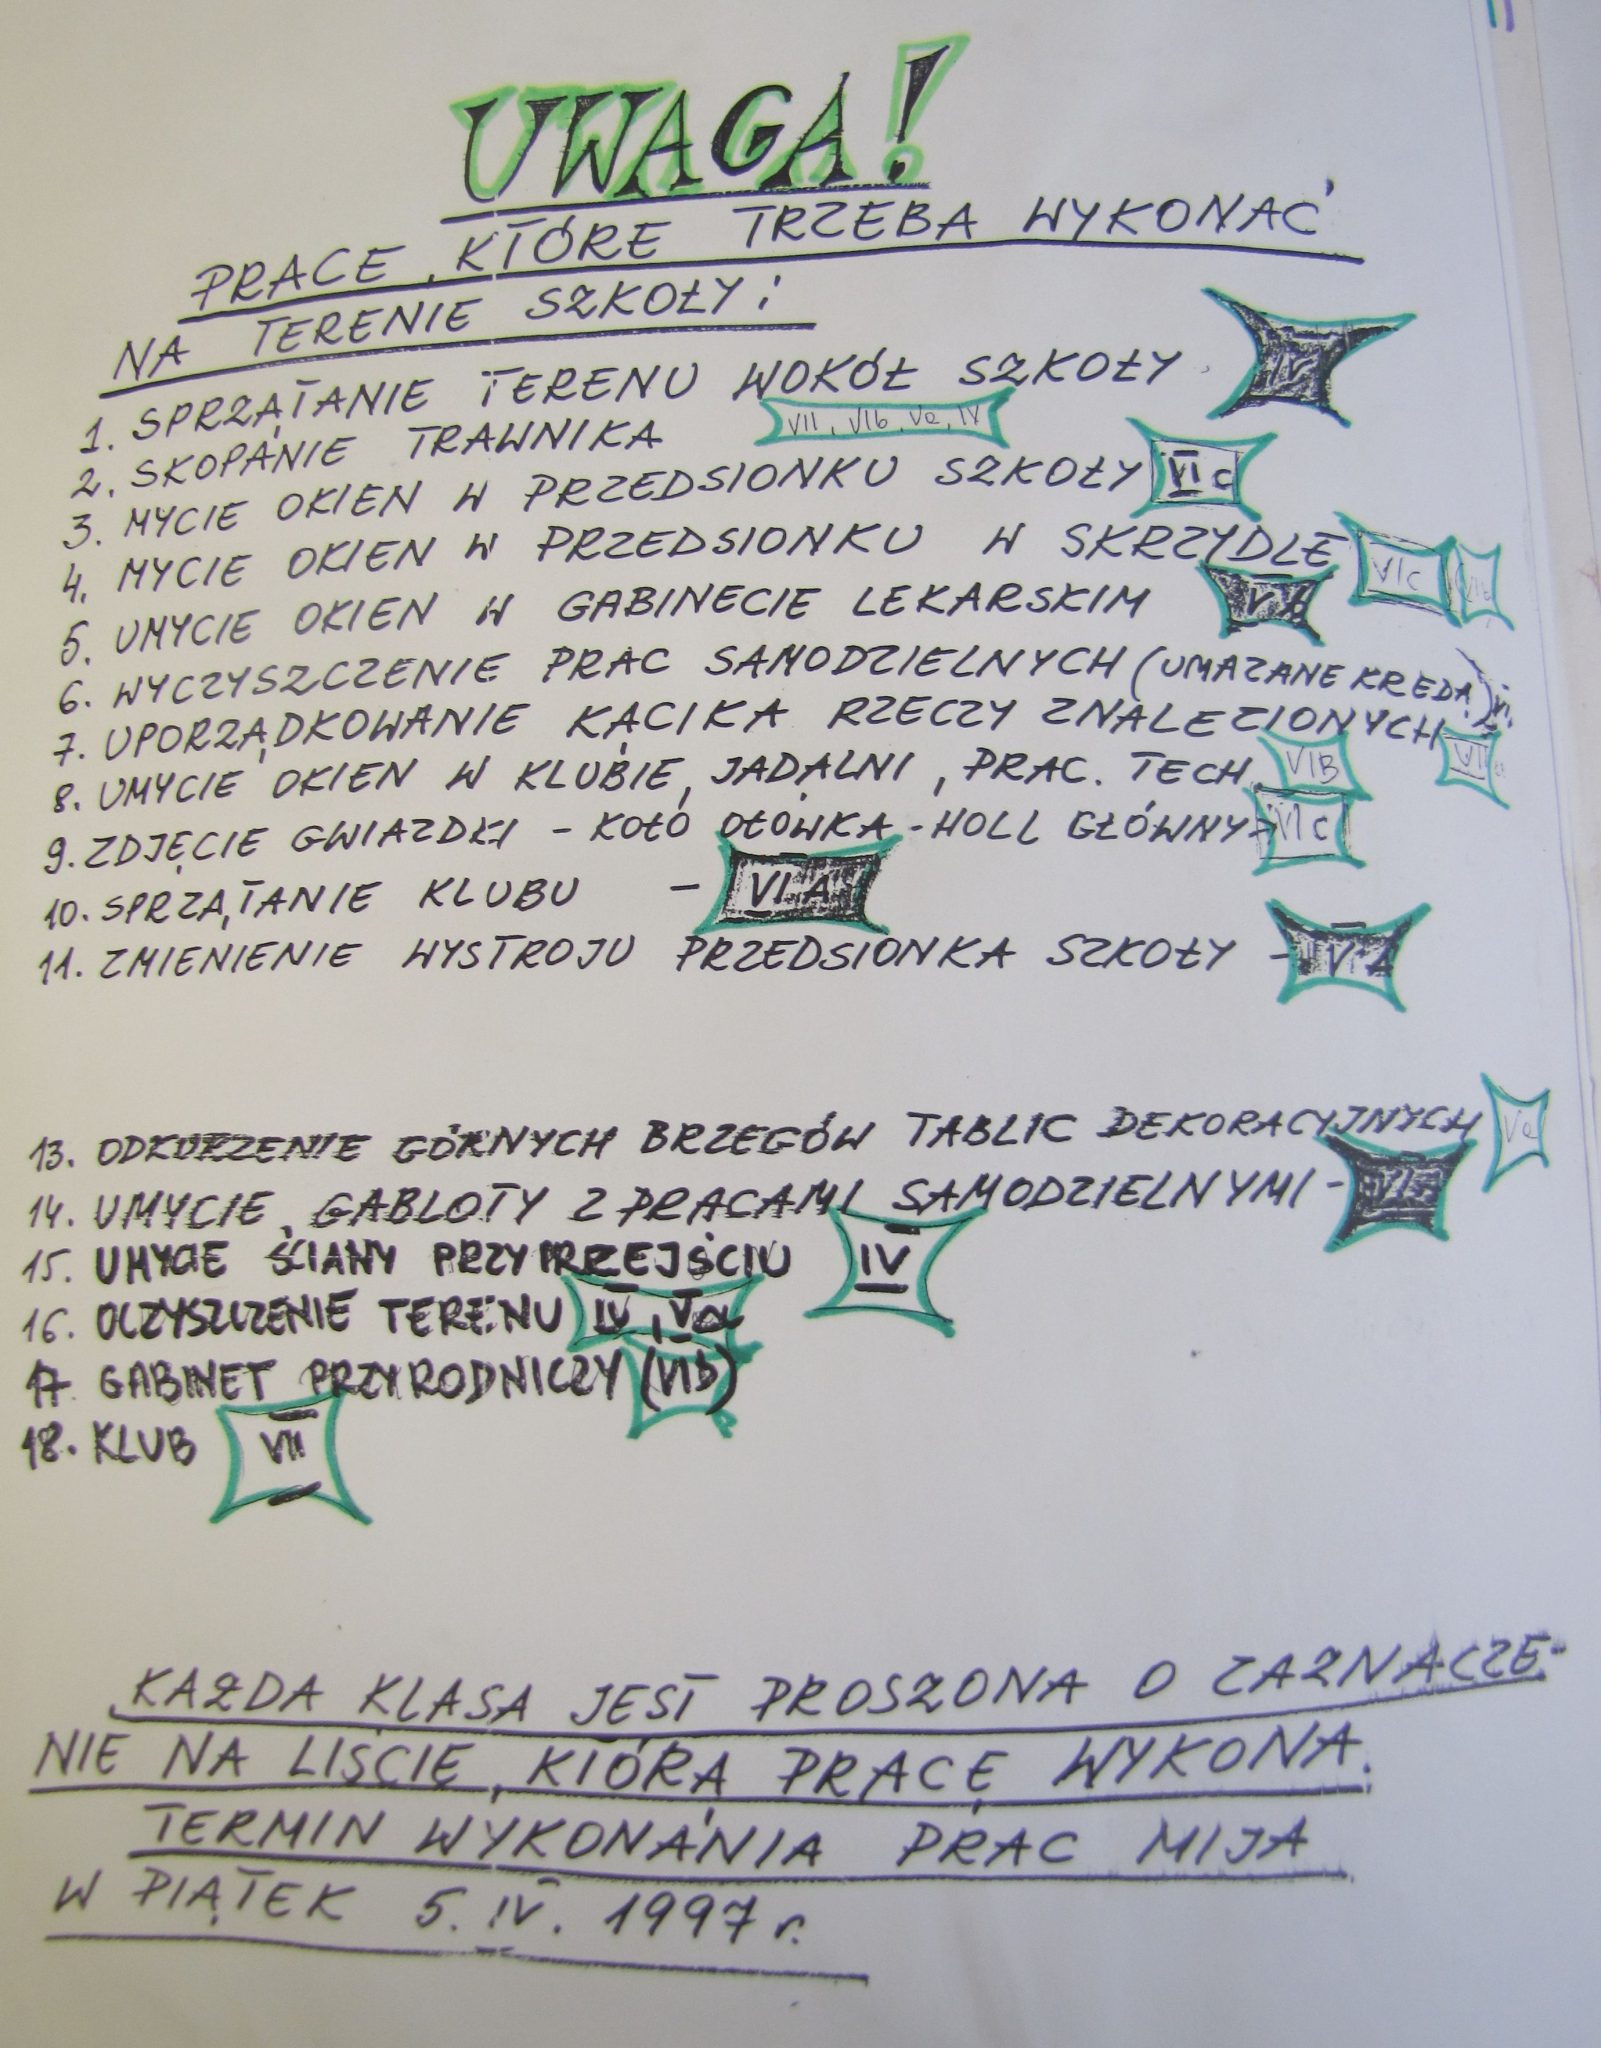 UWAGA!
PRACE, KTÓRE TRZEBA WYKONAĆ
NA TERENIE SZKOŁY:
1. SPRZĄTANIE TERENU WOKÓŁ SZKOŁY IV
2. SKOPANIE TRAWNIKA VII, VIb, Va, IV
3. MYCIE OKIEN W PRZEDSIONKU SZKOŁY VI c
4. MYCIE OKIEN W PRZEDSIONKU W SKRZYDLE VIc
5. UMYCIE OKIEN W GABINECIE LEKARSKIM V b
6. WYCZYSZCZENIE PRAC SAMODZIELNYCH (UMAZANE KREDĄ)
7. UPORZĄDKOWANIE KĄCIKA RZECZY ZNALEZIONYCH
8. UMYCIE OKIEN W KLUBIE, JADALNI, PRAC. TECH. VIB
9. ZDJĘCIE GWIAZDKI - KOŁO OŁÓWKA - HOLL GŁÓWNY VI C
10. SPRZĄTANIE KLUBU - VI A
11. ZMIENIENIE WYSTROJU PRZEDSIONKA SZKOŁY - VI A
13. ODKURZENIE GÓRNYCH BRZEGÓW TABLIC DEKORACYJNYCH Va
14. UMYCIE GABLOTY Z PRACAMI SAMODZIELNYMI -
15. UMYCIE ŚCIANY PRZY PRZEJŚCIU IV
16. OCZYSZCZENIE TERENU IV, Va
17 GABINET PRZYRODNICZY (VIB)
18. KLUB VII
KAŻDA KLASA JEST PROSZONA O ZAZNACZE-
NIE NA LIŚCIE, KTÓRĄ PRACĘ WYKONA.
TERMIN WYKONANIA PRAC MIJA
W PIĄTEK 5. IV. 1997 r.